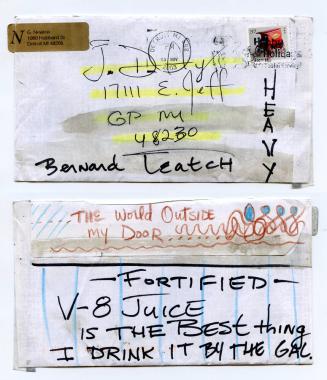 N
G. Newton
Detroit MI 48209
J. D
17111 E. Jeff
GP MI
48230
HEAVY
Bernard Leatch
THE World Outside
My Door
—FORTIFIED—
V-8 JUICE
IS THE BEST thing
I DRINK IT BY THE GAL.